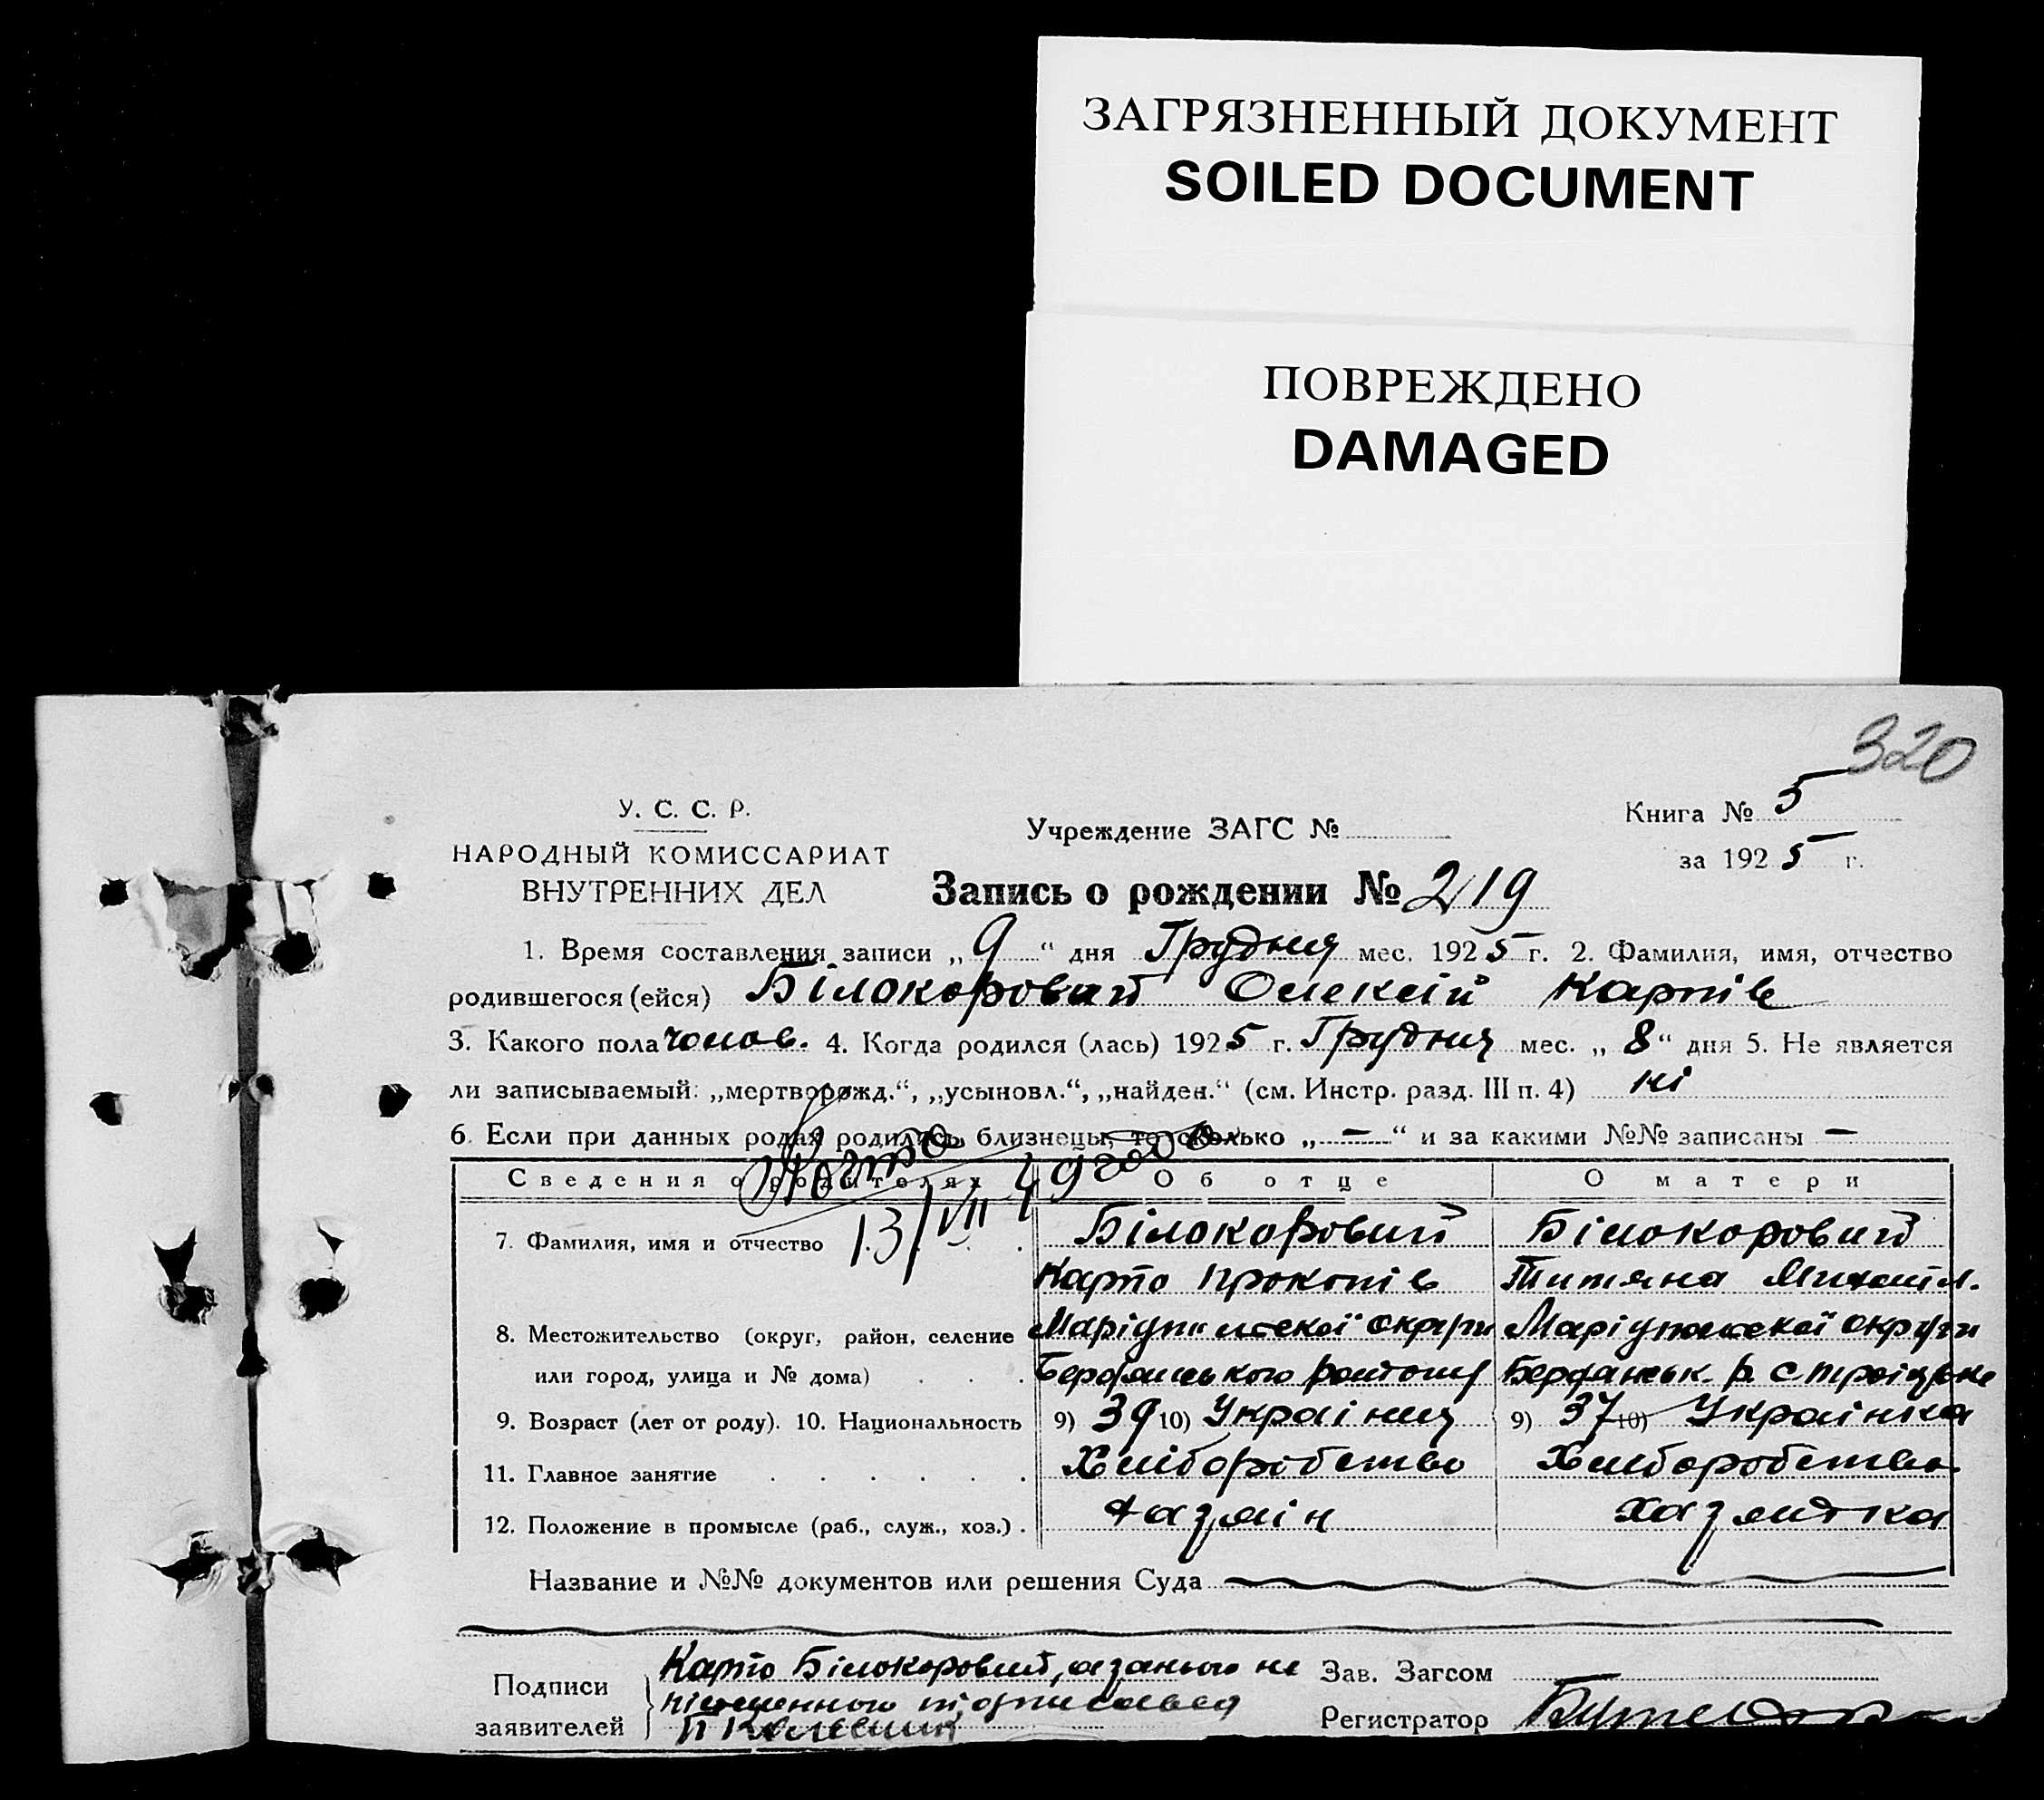 ЗАГРЯЗНЕННЫЙ ДОКУМЕНТ
SOILED DOCUMENT
ПОВРЕЖДЕНО
DAMAGED
320
У. С. С. Р.
НАРОДНЫЙ КОМИССАРИАТ
ВНУТРЕННИХ ДЕЛ
Учреждение ЗАГС №
Книга № 5
за 1925 г.
Запись о рождении № 219
1. Время составления записи „9“ дня Грудня мес. 1925 г. 2. Фамилия, имя, отчество
родившегося (ейся) Білокоровий Олексій Карпів
3. Какого пола чолов. 4. Когда родился (лась) 1925 г. Грудня мес. „8“ дня 5. Не является
ли записываемый: „мертворожд.“, „усыновл.“, „найден.“ (см. Инстр. разд. III п. 4) ні
6. Если при данных родах родились близнецы, то сколько „—“ и за какими №№ записаны —
Сведения о родителях Об отце О матери
13/VII
7. Фамилия, имя и отчество Білокоровий Білокоровий
Карпо Прокопів Титяна Михайл.
8. Местожительство (округ, район, селение Маріупільської округи Маріупільської округи
или город, улица и № дома) Бердянського району Бердянськ. р. с Троіцьке
9. Возраст (лет от роду). 10. Национальность 9) 39 10) Украінця 9) 37 10) Украінка
11. Главное занятие Хліборобство Хліборобство
12. Положение в промысле (раб., служ., хоз.) Хазяїн Хазяйка
Название и №№ документов или решения Суда
Подписи
заявителей
Карпо Білокоровий, а за нього не
письменного підписався
Зав. Загсом
Регистратор